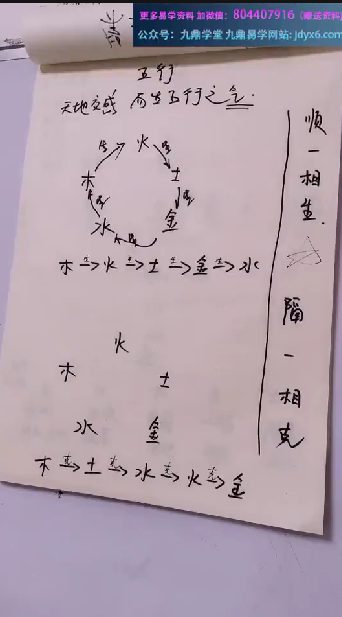 更多易学资料 加微信：804407916（赠送资料）
公众号：九鼎学堂 九鼎易学网站：jdyx6.com
五行
天地交感 而生五行之气.
火
木 土
水 金
生 生 生 生 生
木生>火生>土生>金生>水
火
木 土
水 金
木克>土克>水克>火克>金
顺一相生.
隔一相克